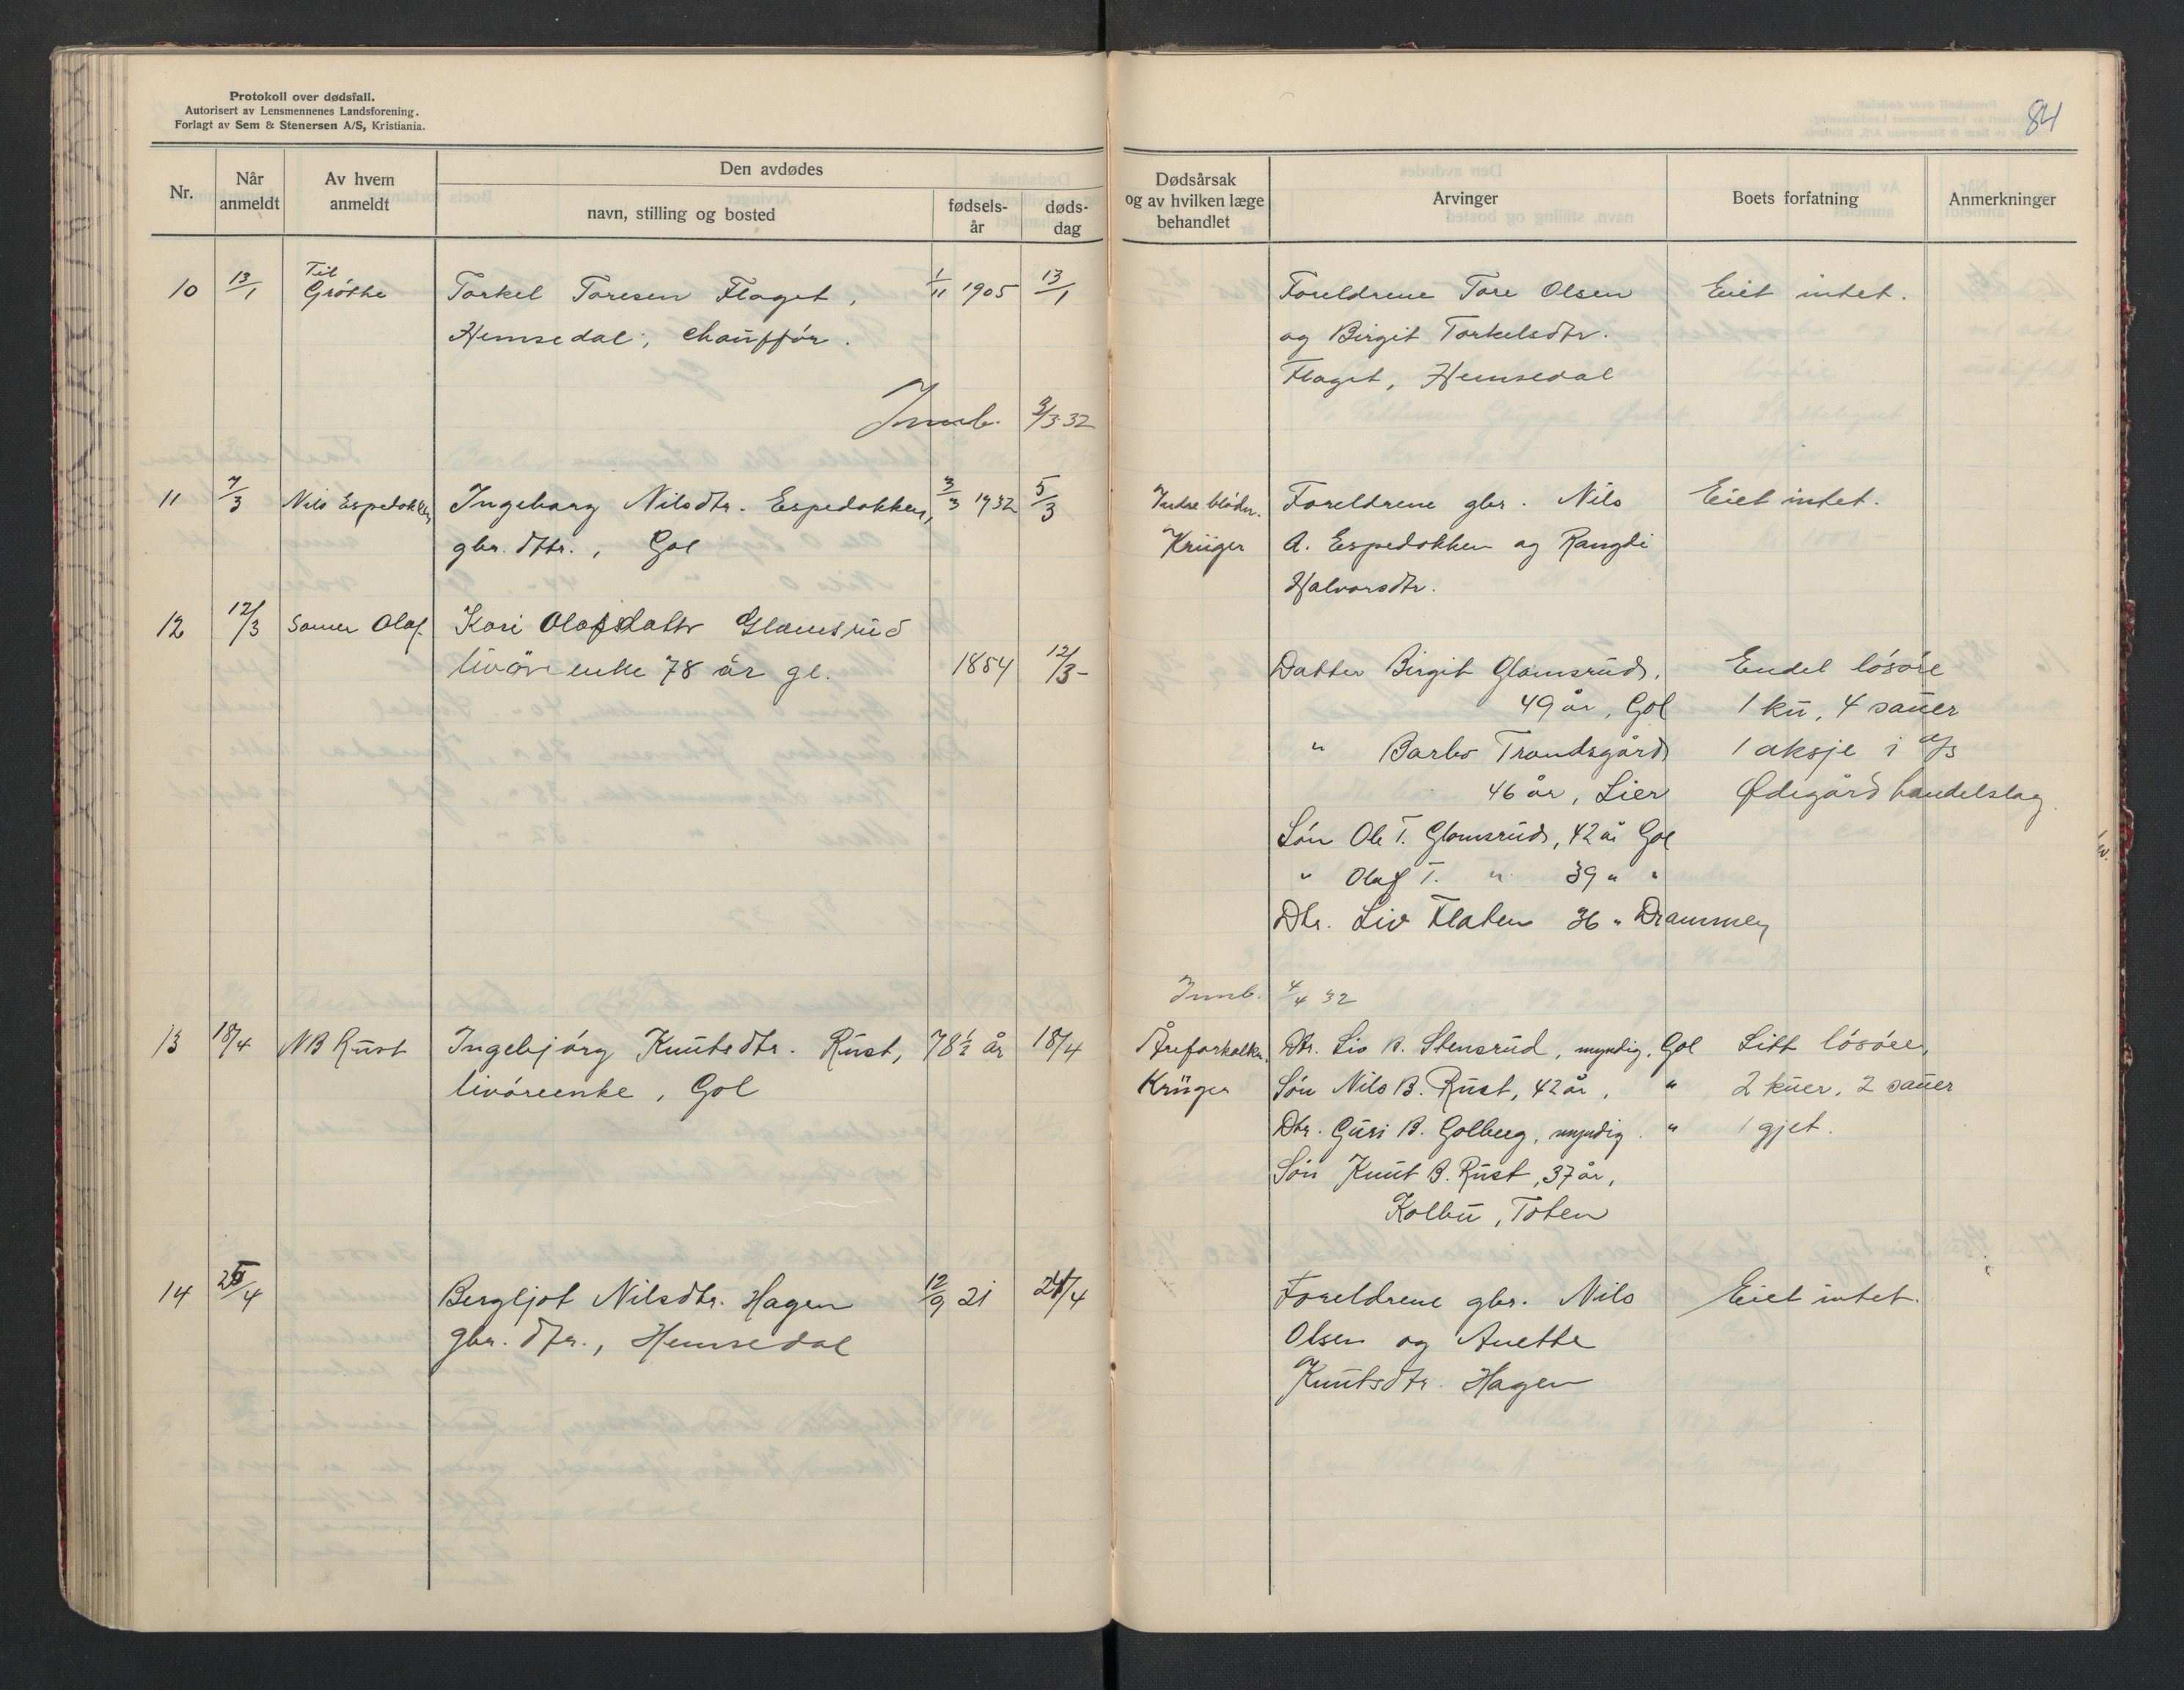 Protokoll over dødsfall.
Autorisert av Lensmennenes Landsforening.
Forlagt av Sem & Stenersen A/S, Kristiania.
84
Nr.
Når anmeldt
Av hvem anmeldt
Den avdødes
navn, stilling og bosted
fødsels-år
døds-dag
Dødsårsak og av hvilken læge behandlet
Arvinger
Boets forfatning
Anmerkninger
10 13/1 Til Grøthe Torkel Toresen Flaget, 1/11 1905 13/1 Foreldrene Tore Olsen Eiet intet.
Hemsedal, chauffør. og Birgit Torkelsdtr.
Flaget, Hemsedal
Innb. 2/3 32
11 7/3 Nils Espedokken Ingeborg Nilsdtr. Espedokken, 3/3 1932 5/3 Indre blødn. Foreldrene gbr. Nils Eiet intet.
gbr. dtr., Gol Krüger A. Espedokken og Rangdi
Halvorsdtr.
12 12/3 Sønnen Olaf Kari Olafsdattr Glomsrud
livøreenke 78 år gl. 1854 12/3 - Datter Birgit Glomsrud, Endel løsøre
49 år, Gol 1 ku, 4 sauer
" Barbo Trondsgård 1 aksje i a/s
46 år, Lier Ødegård handelslag.
Søn Ole T. Glomsrud, 42 år Gol
" Olaf T. " 39 " "
Dtr. Liv Flaten 36 " Drammen
Innb. 4/4 32
13 18/4 NB Rust Ingebjørg Knutsdtr. Rust, 78 1/2 år 18/4 Åreforkalkn. Dtr. Liv B. Stensrud, myndig, Gol Litt løsøre,
livøreenke, Gol Krüger Søn Nils B. Rust, 42 år, " 2 kuer, 2 sauer
Dtr. Guri B. Golberg, myndig. " 1 gjet.
Søn Knut B. Rust, 37 år,
Kolbu, Toten
14 25/4 Bergljot Nilsdtr. Hagen 12/9 21 24/4 Foreldrene gbr. Nils Eiet intet.
gbr. dtr., Hemsedal Olsen og Anette
Knutsdtr. Hagen